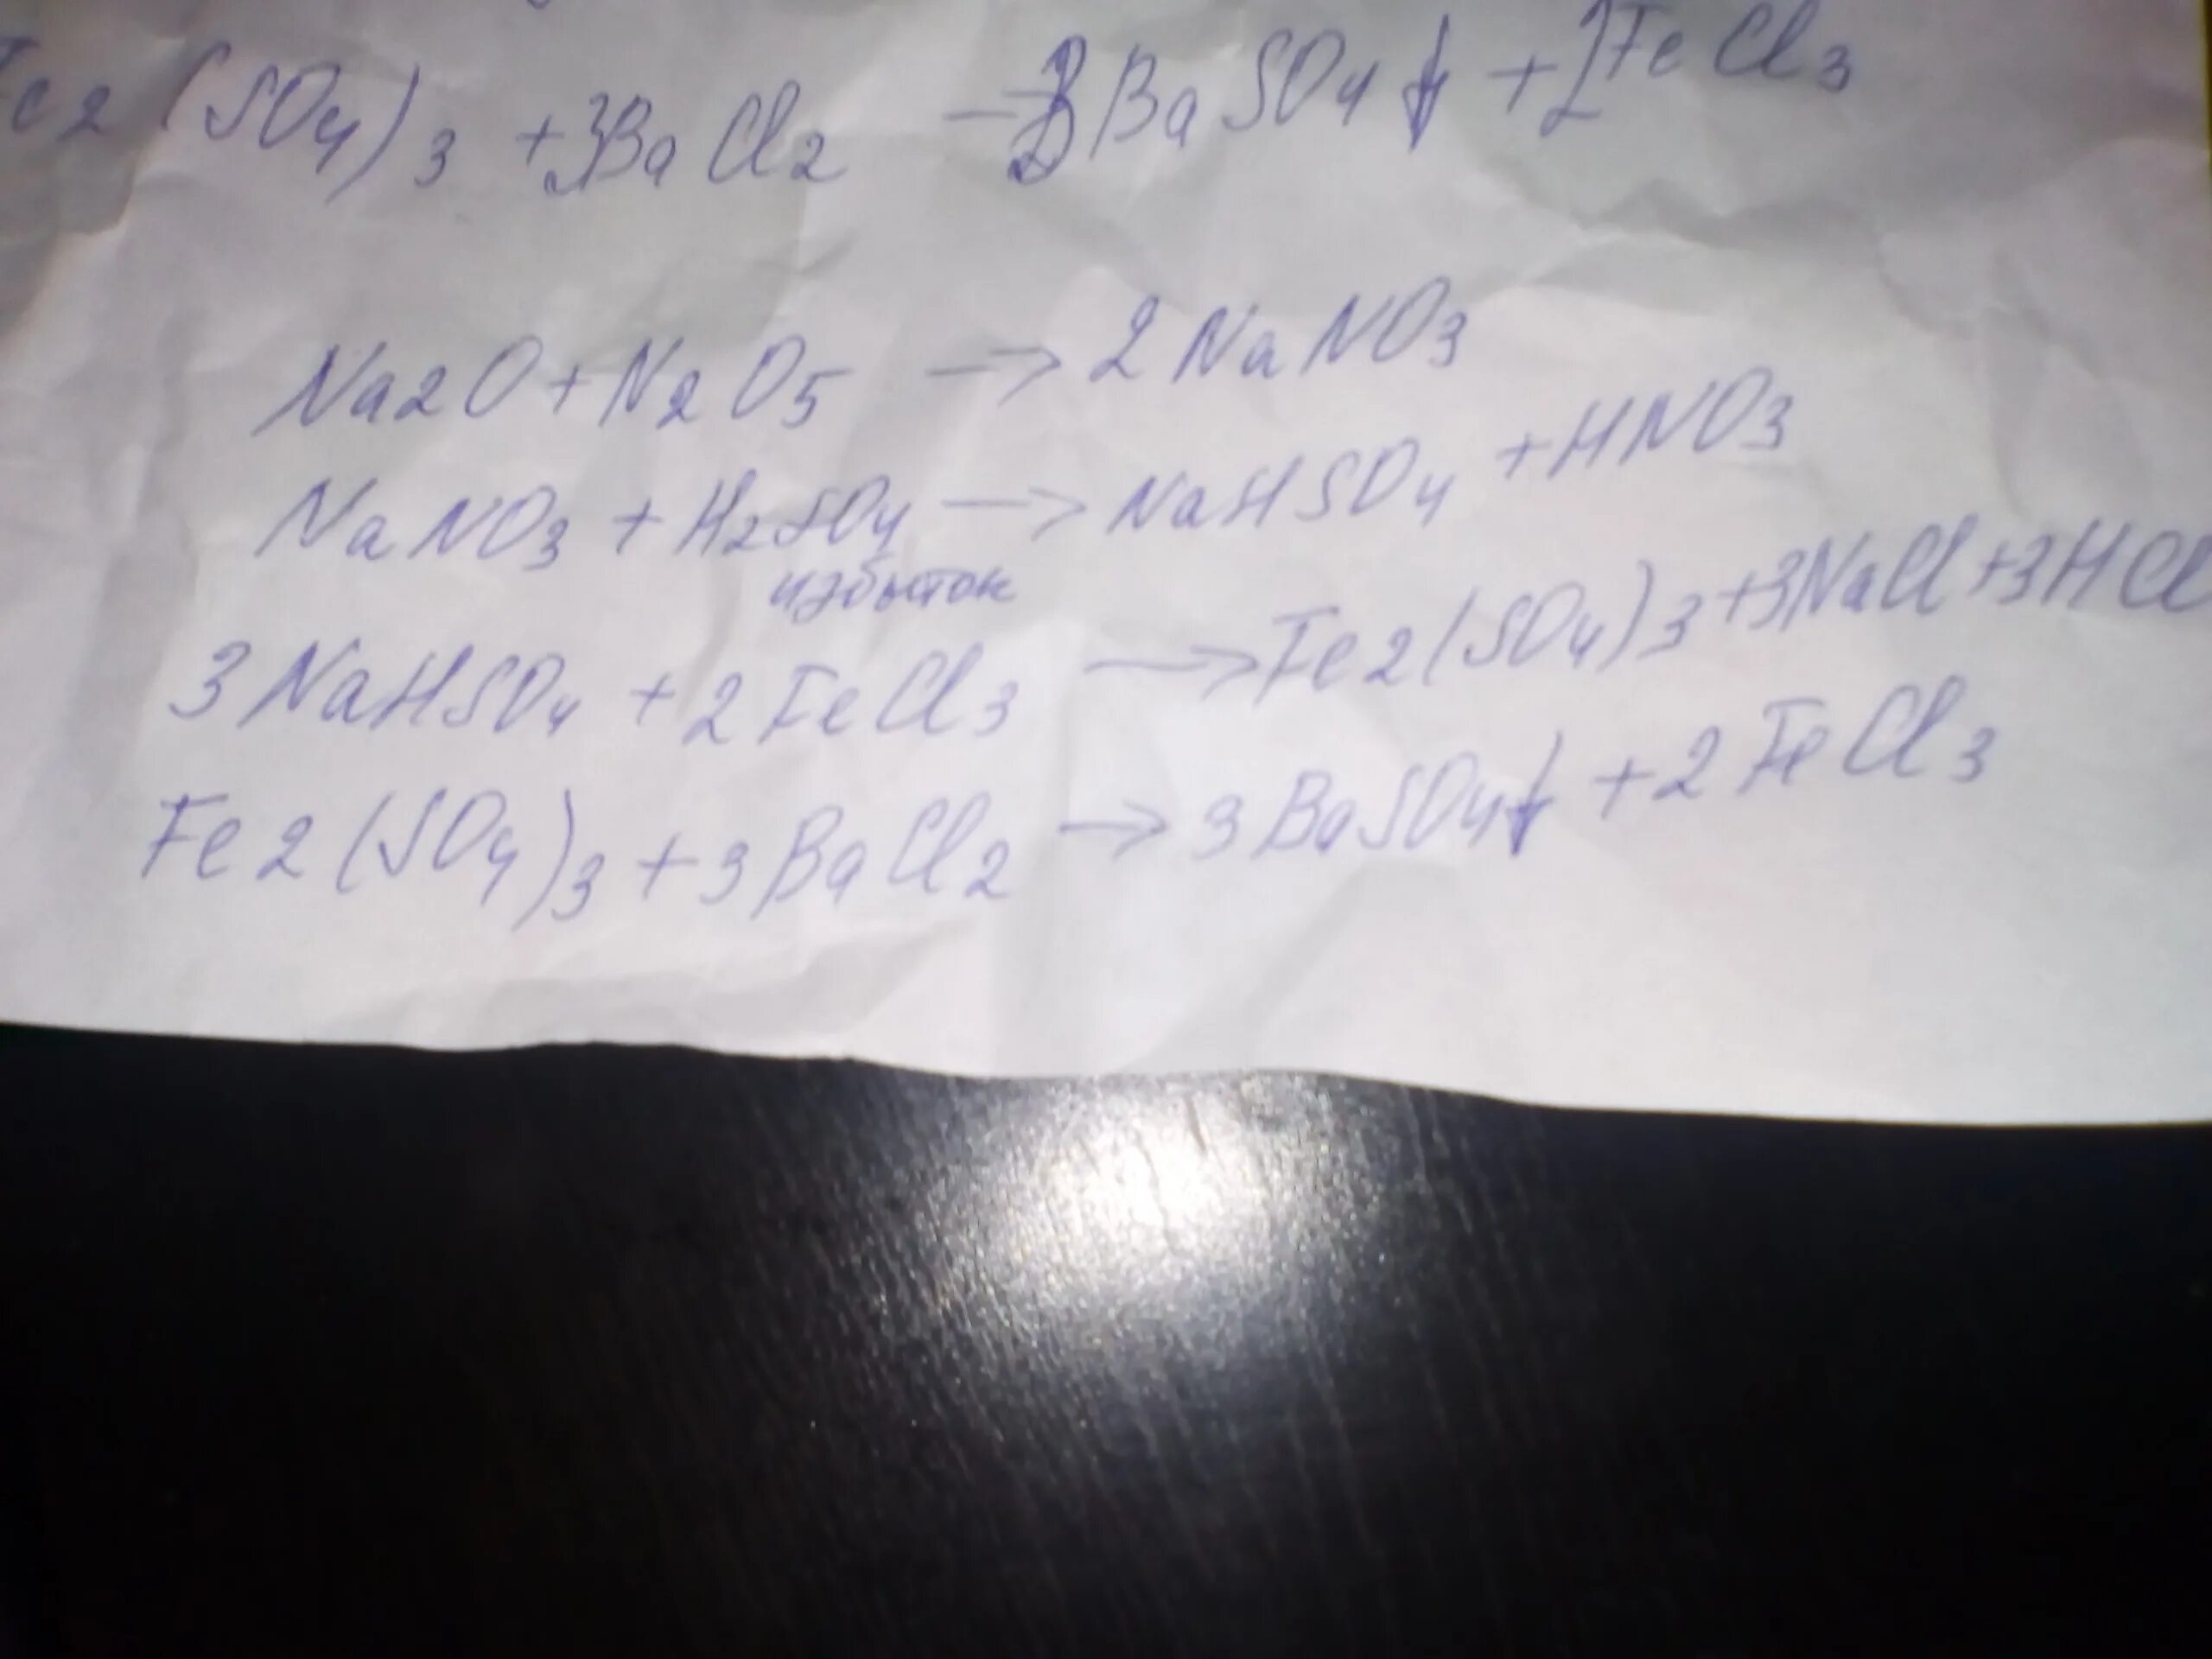 Fe2(SO4)3 + 3BaCl2 → 3BaSO4↓ + 2FeCl3
Na2O + N2O5 → 2NaNO3
NaNO3 + H2SO4 → NaHSO4 + HNO3
избыток
3NaHSO4 + 2FeCl3 → Fe2(SO4)3 + 3NaCl + 3HCl
Fe2(SO4)3 + 3BaCl2 → 3BaSO4↓ + 2FeCl3